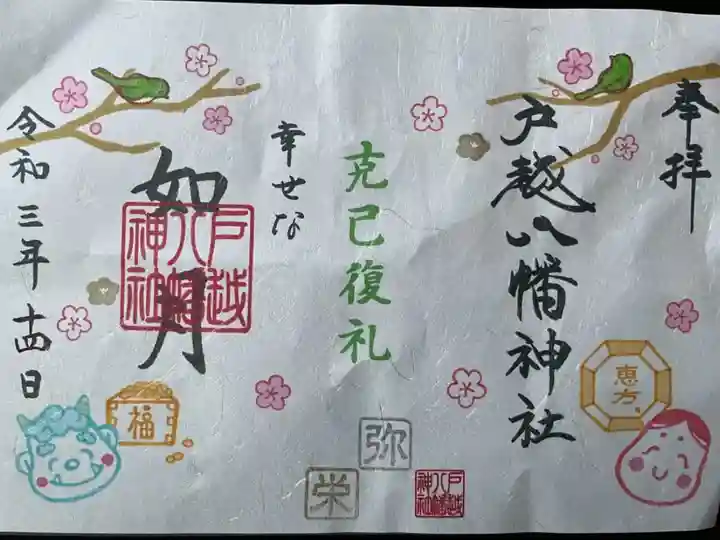 奉拝
戸越八幡神社
克己復礼
幸せな
如月
令和三年十四日
戸越
八幡
神社
恵方
福
弥
栄
戸越
八幡
神社